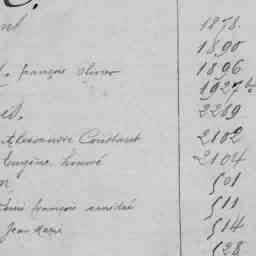 1878.
1890
françois olivier 1896
1927 bis
2289
Alexandre Constant 2102
Eugène honoré 2104
501
françois amédée 511
Jean Marie 514
528